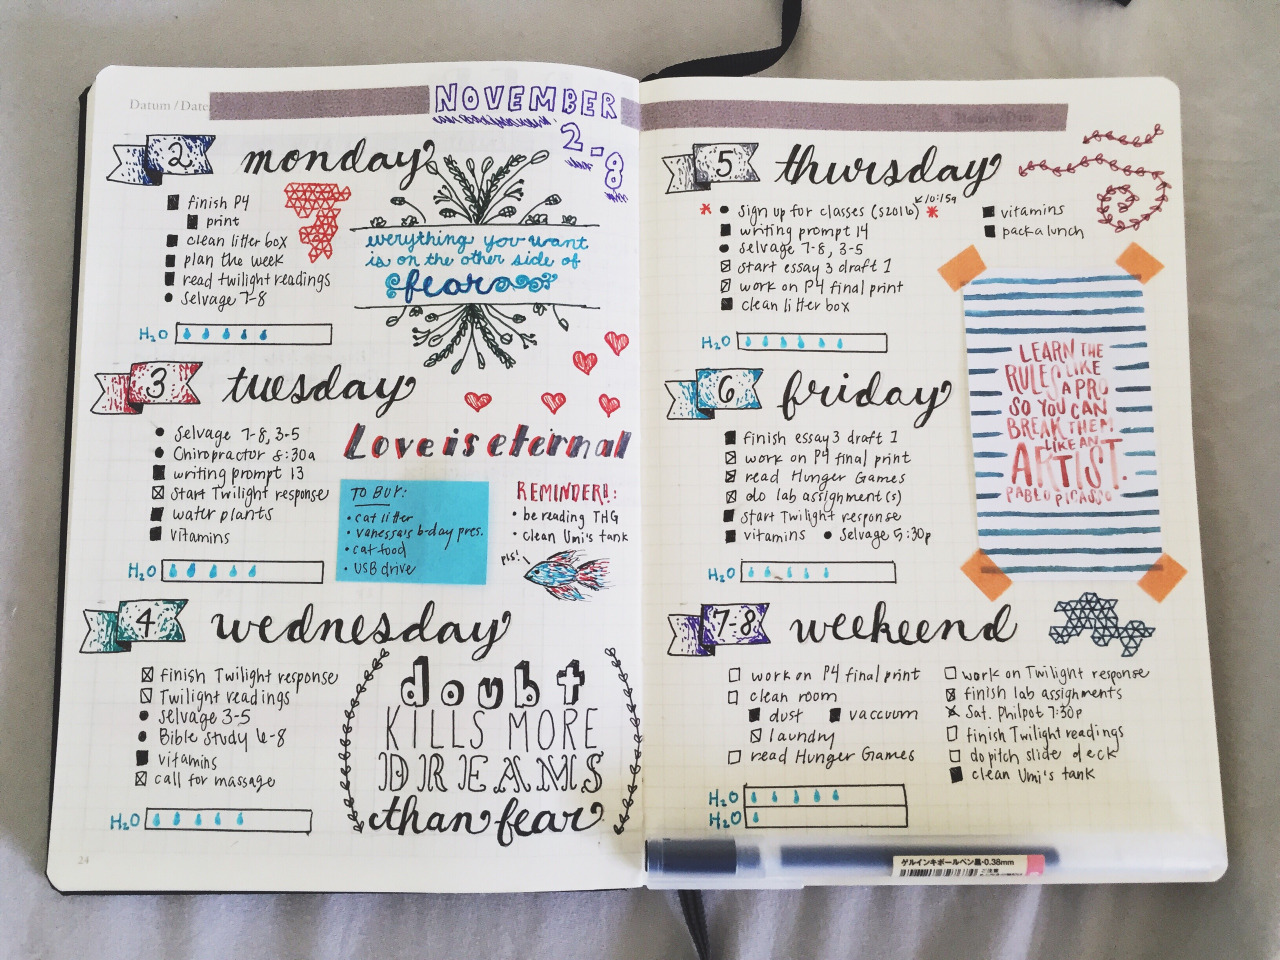 Datum / Date:
NOVEMBER
2-8
2 monday
finish P4
print
clean litter box
plan the week
read twilight readings
Selvage 7-8
H2O
everything you want
is on the other side of
fear
3 tuesday
Selvage 7-8, 3-5
Chiropractor 8:30a
writing prompt 13
start Twilight response
water plants
vitamins
H2O
Love is eternal
TO BUY:
• cat litter
• vanessa's b-day pres.
• cat food
• USB drive
REMINDER!:
• be reading THG
• clean Umi's tank
pls!
4 wednesday
finish Twilight response
Twilight readings
Selvage 3-5
Bible Study 6-8
vitamins
call for massage
H2O
doubt
KILLS MORE
DREAMS
than fear
24
5 thursday
* • Sign up for classes (S2016) * 10:15a
writing prompt 14
• Selvage 7-8, 3-5
start essay 3 draft 1
work on P4 final print
clean litter box
vitamins
pack a lunch
H2O
LEARN THE
RULES LIKE
A PRO
SO YOU CAN
BREAK THEM
LIKE AN
ARTIST.
PABLO PICASSO
6 friday
finish essay 3 draft 1
work on P4 final print
read Hunger Games
do lab assignment(s)
start Twilight response
vitamins • Selvage 5:30p
H2O
7-8 weekend
work on P4 final print
clean room
dust vaccuum
laundry
read Hunger Games
work on Twilight response
finish lab assignments
Sat. Philpot 7:30p
finish Twilight readings
do pitch slide deck
clean Umi's tank
H2O
H2O
ゲルインキボールペン黒・0.38mm